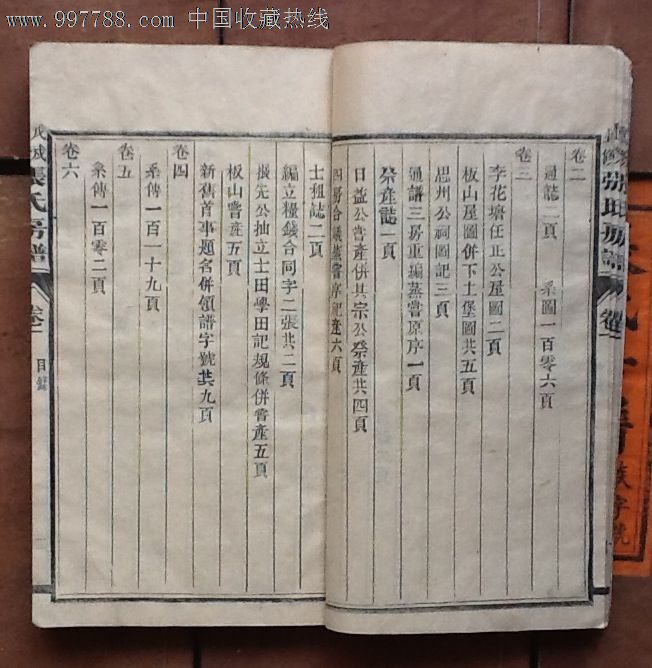 www.997788.com 中国收藏热线
卷二
通誌二頁 系圖一百零六頁
卷三
李花塘任正公屋圖二頁
板山屋圖併下土堡圖共五頁
思州公祠圖記三頁
通譜三房重編蒸嘗原序一頁
祭產誌一頁
日益公嘗產併其宗公祭產共四頁
四房合議蒸嘗序記產六頁
士租誌二頁
編立糧錢合同字二張共二頁
振先公抽立士田學田記規條併嘗產五頁
板山嘗產五頁
新舊首事題名併領譜字號共九頁
卷四
系傳一百一十九頁
卷五
系傳一百零二頁
卷六
戊戌張氏房譜
卷之一
目錄
一
族字號